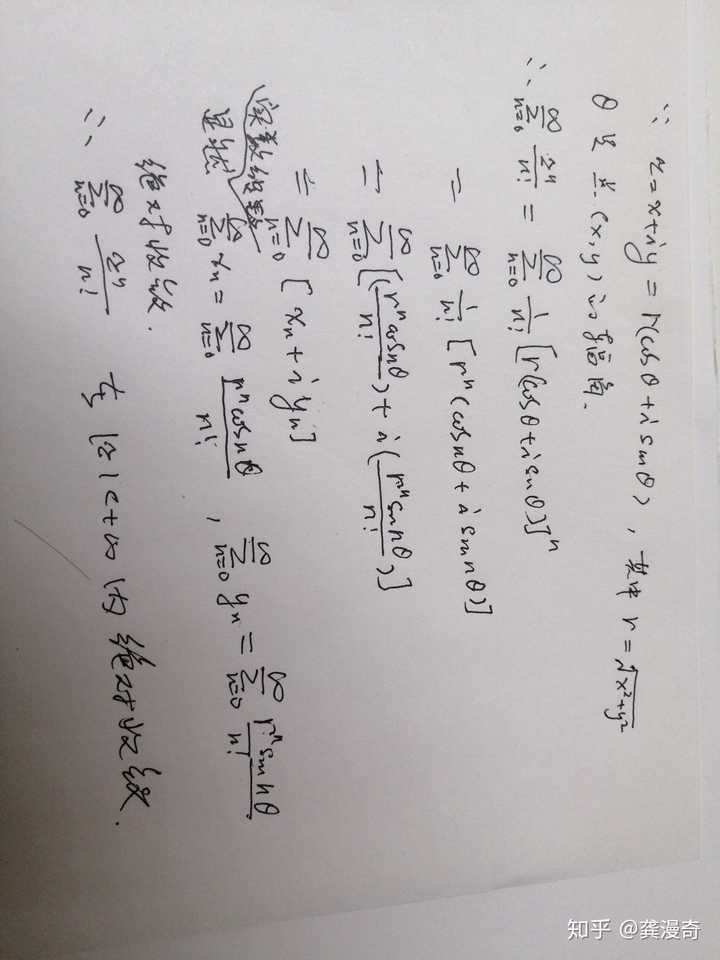 ∵ z=x+iy=r(cosθ+i sinθ), 其中 r=√(x²+y²)
θ是点(x,y)的辐角.
∴ ∑_{n=0}^{∞} zⁿ/n! = ∑_{n=0}^{∞} 1/n! [r(cosθ+i sinθ)]ⁿ
= ∑_{n=0}^{∞} 1/n! [rⁿ(cos nθ+i sin nθ)]
= ∑_{n=0}^{∞} [(rⁿcos nθ/n!)+i(rⁿsin nθ/n!)]
= ∑_{n=0}^{∞} [xₙ+i yₙ]
实数级数
显然 ∑_{n=0}^{∞} xₙ = ∑_{n=0}^{∞} rⁿcos nθ/n! , ∑_{n=0}^{∞} yₙ = ∑_{n=0}^{∞} rⁿsin nθ/n!
绝对收敛.
∴ ∑_{n=0}^{∞} zⁿ/n! 在|z|<+∞内绝对收敛.
知乎 @龚漫奇